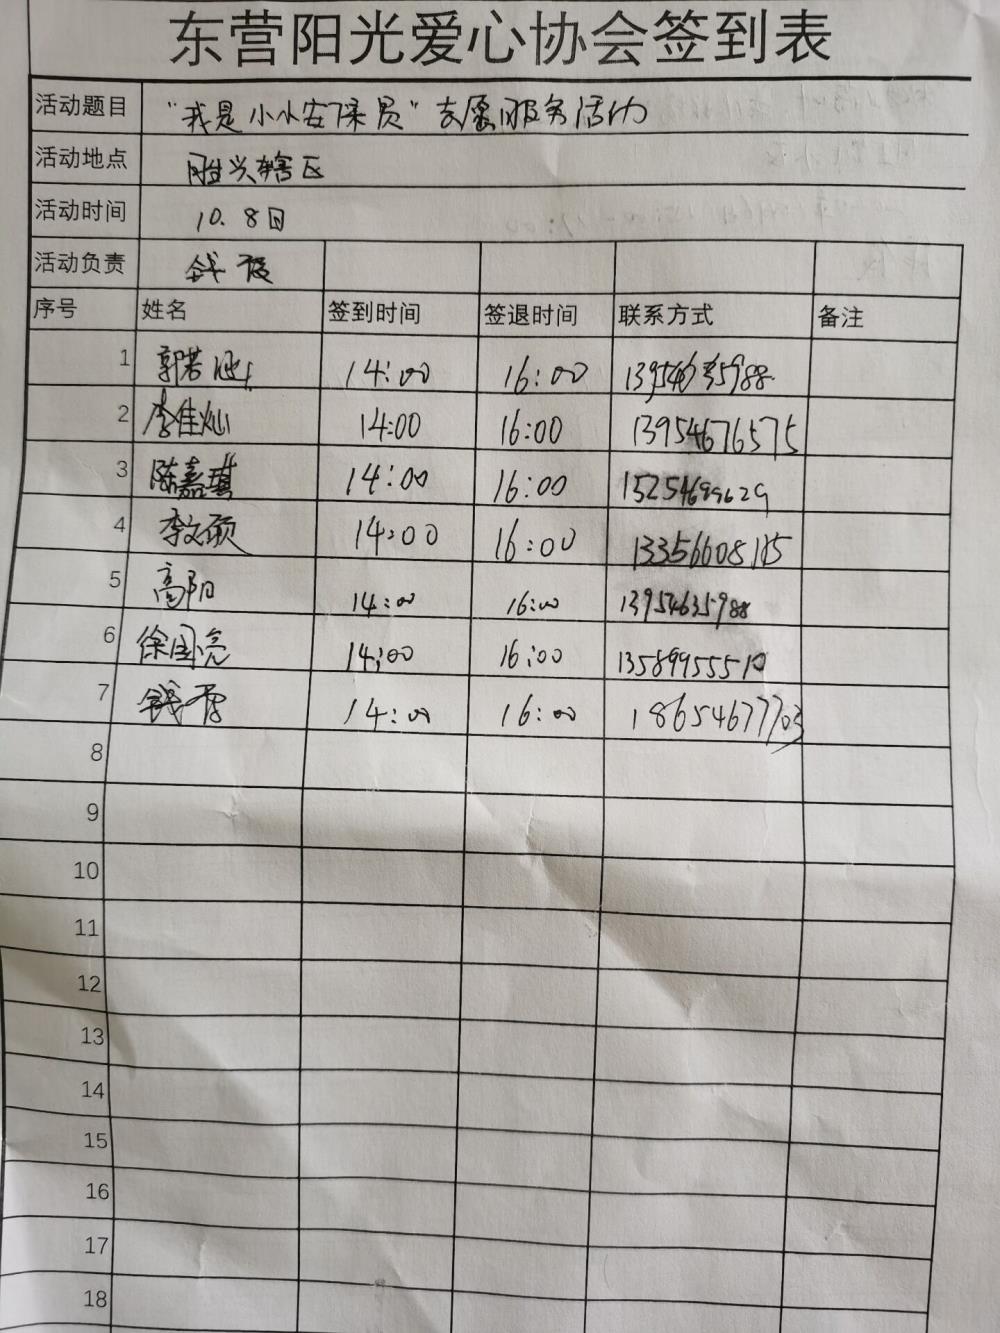 东营阳光爱心协会签到表
活动题目 "我是小小安保员"志愿服务活动
活动地点 胜兴辖区
活动时间 10.8日
活动负责 钱
序号 姓名 签到时间 签退时间 联系方式 备注
1 郭若 14:00 16:00 13954635988
2 李佳灿 14:00 16:00 13954676575
3 陈嘉琪 14:00 16:00 15254699629
4 李文硕 14:00 16:00
5 高阳 14:00 16:00 13954635988
6 徐国亮 14:00 16:00 13589955510
7 钱 14:00 16:00 18654677703
8
9
10
11
12
13
14
15
16
17
18